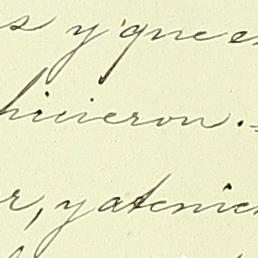 s y que e
hicieron.=
r, y atenie